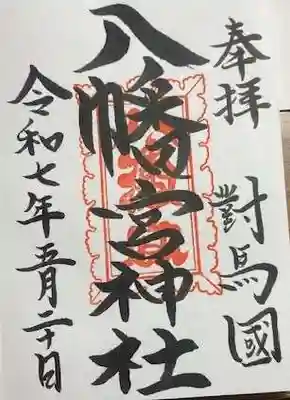 奉拝 對馬國
八幡宮神社
令和七年五月二十日